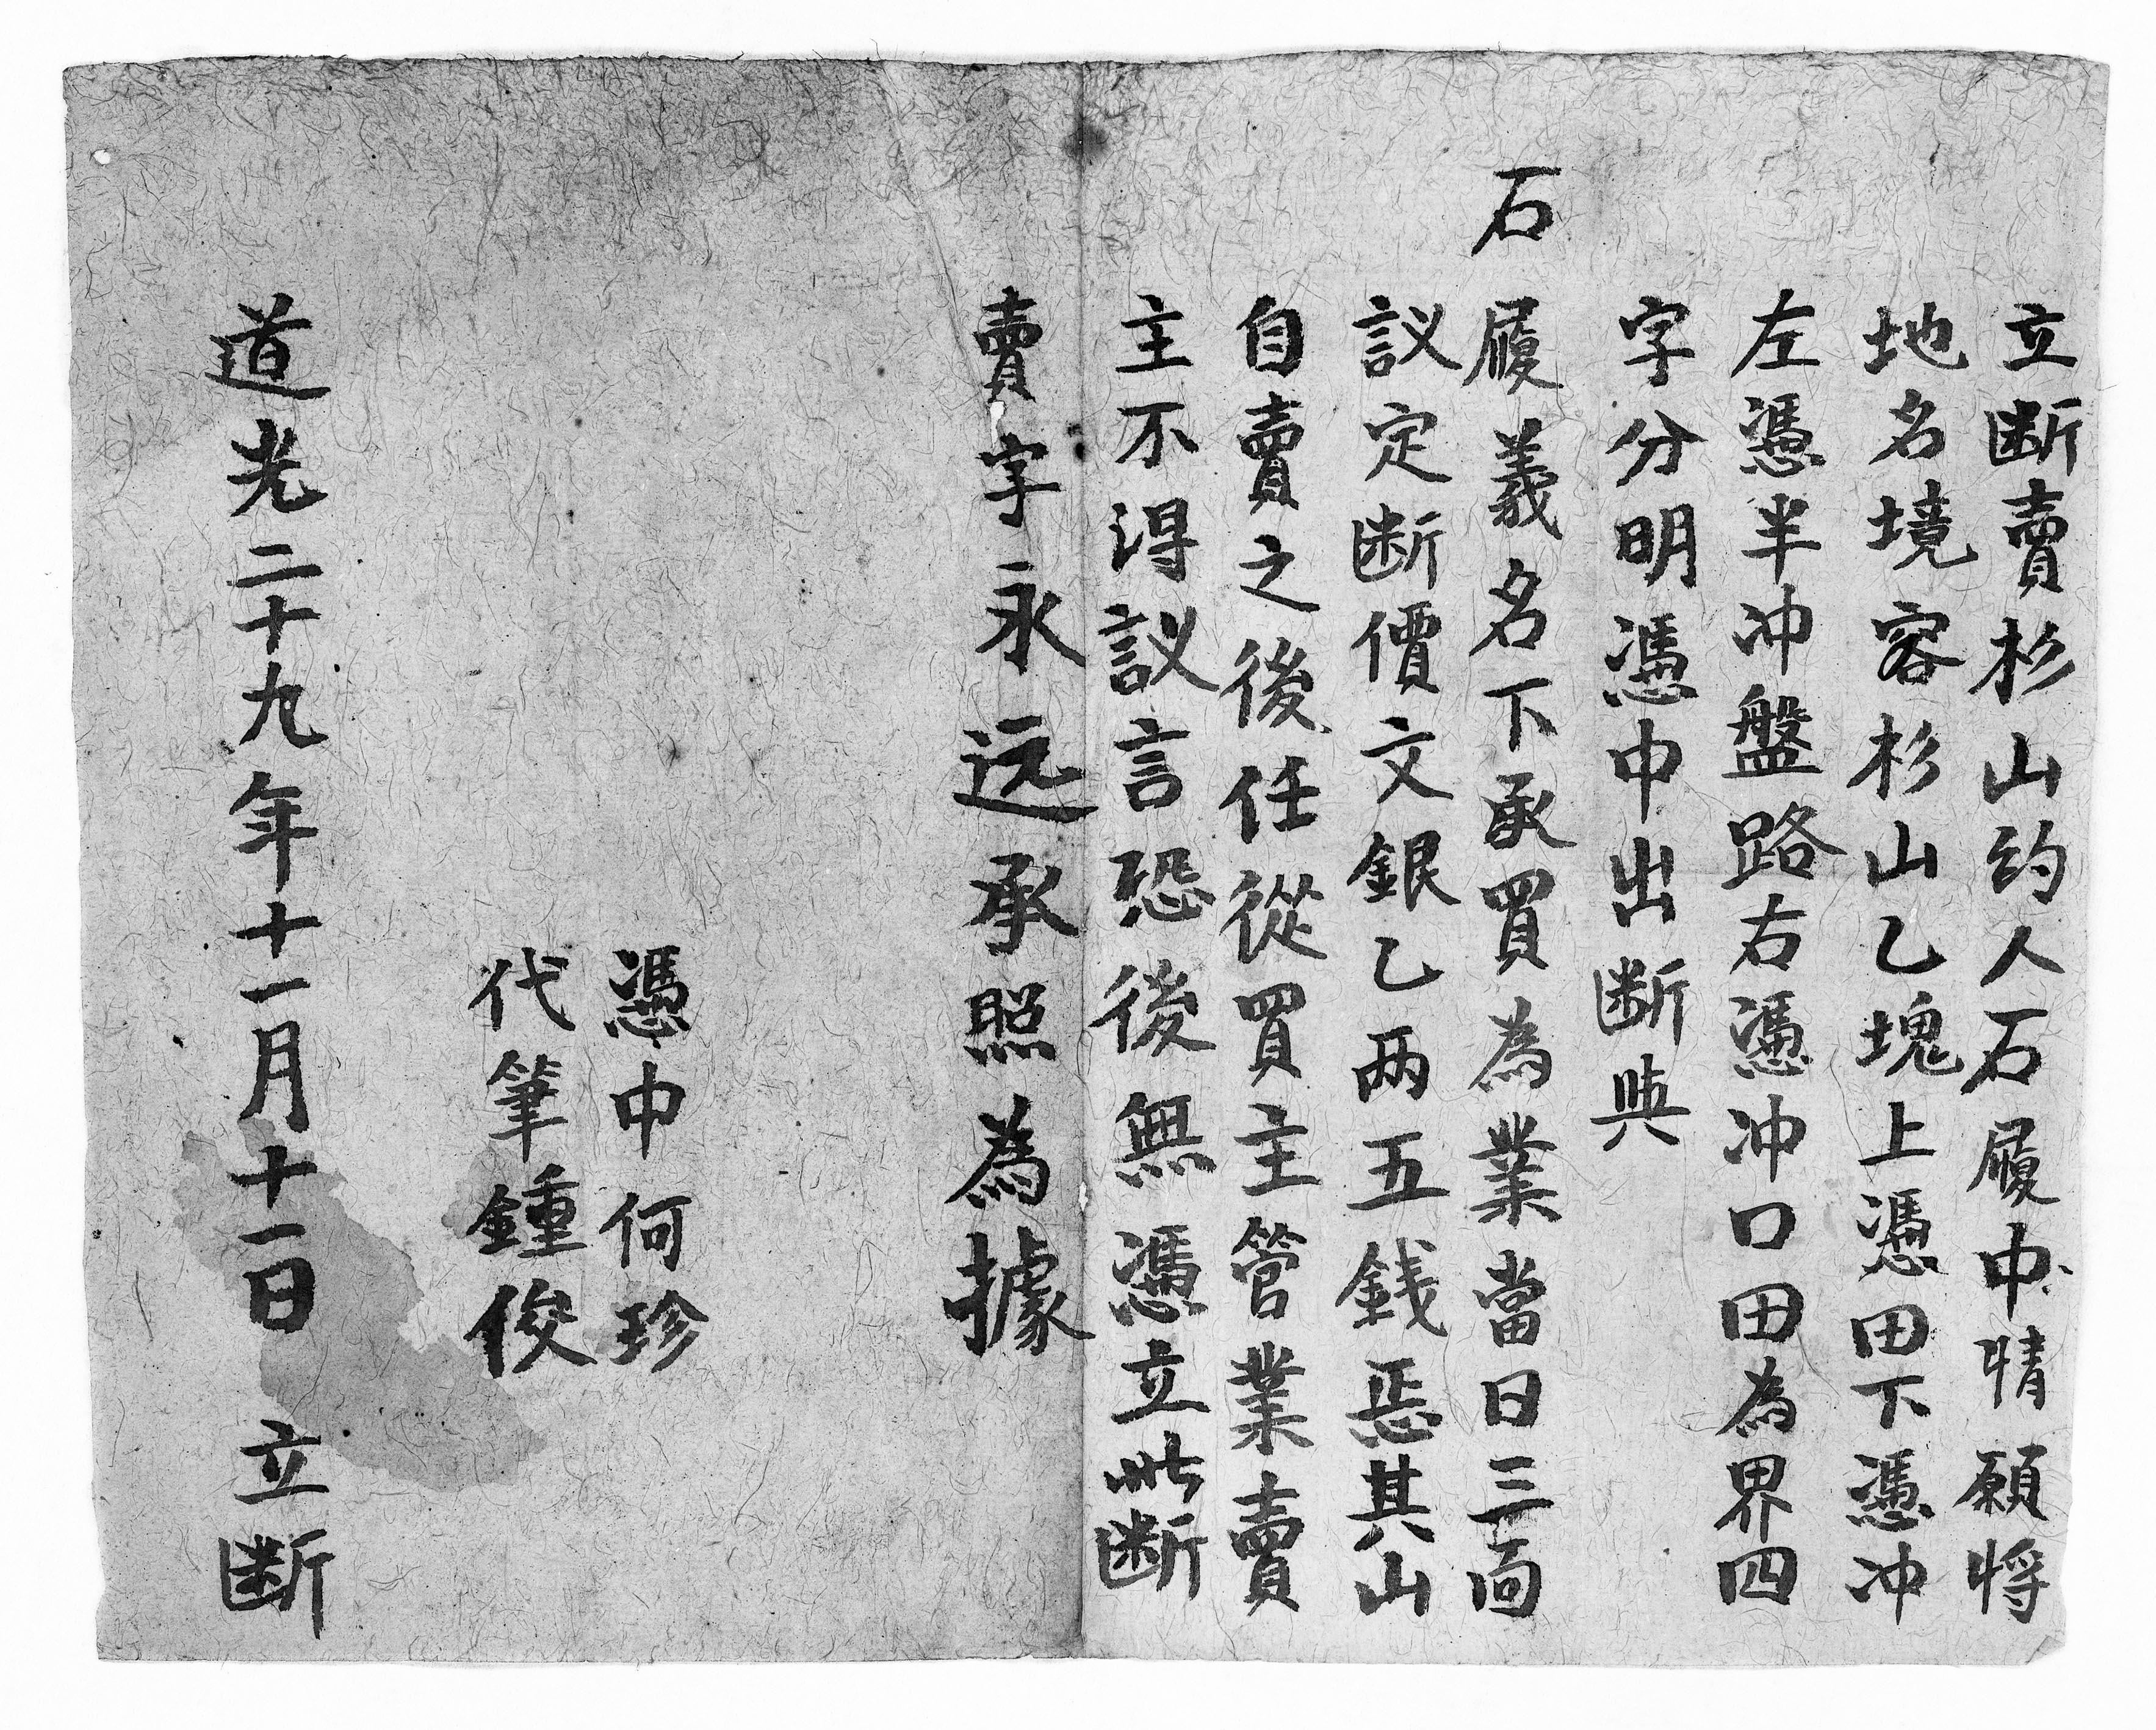 立断賣杉山约人石履中情願将
地名境容杉山乙塊上憑田下憑冲
左憑半冲盤路右憑冲口田為界四
字分明憑中出断與
石履義名下承買為業當日三面
议定断價文銀乙两五錢㤙其山
自賣之後任從買主管業賣
主不得议言恐後無憑立此断
賣字永远承照為據
憑中何珍
代筆鍾俊
道光二十九年十一月十一日 立断